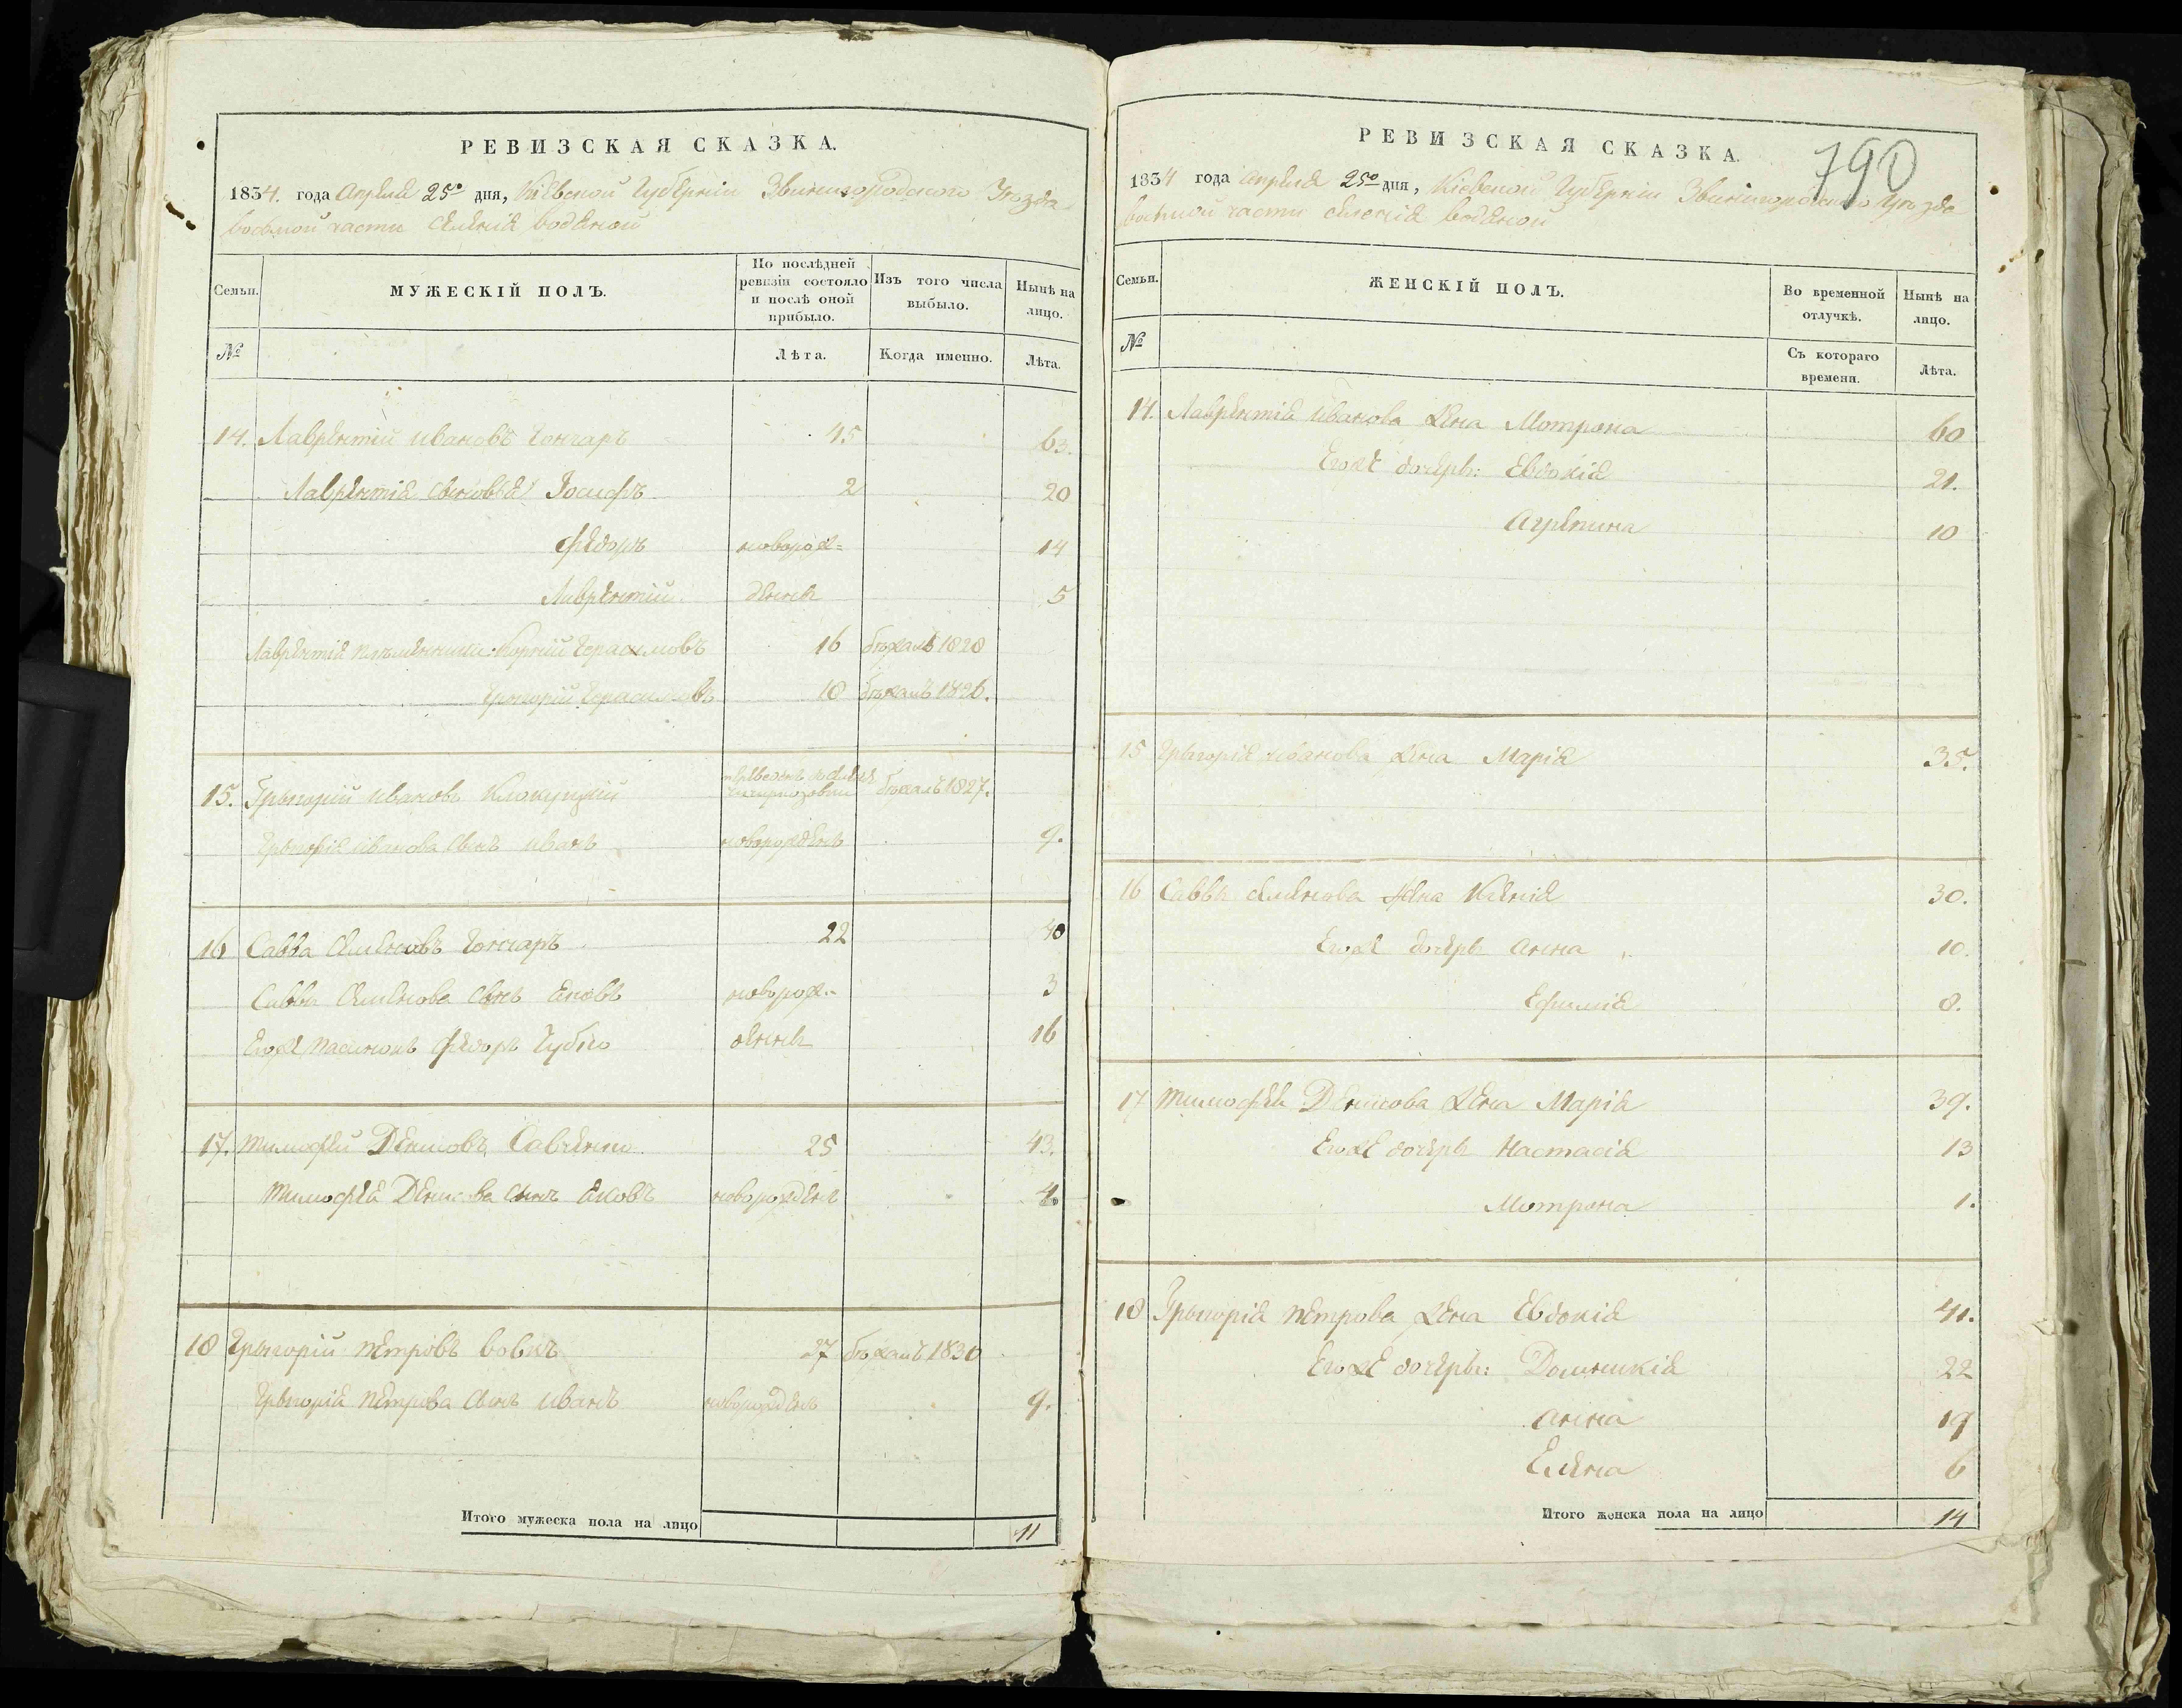 РЕВИЗСКАЯ СКАЗКА.
1834. года Апреля 25º дня, Кіевской Губерніи Звенигородского Уезда
восьмой части селенія Водяной
Семьи. МУЖЕСКІЙ ПОЛЪ. По послѣдней ревизіи состояло и послѣ оной прибыло. Изъ того числа выбыло. Нынѣ на лицо.
№ Лѣта. Когда именно. Лѣта.
14. Лаврентій Ивановъ Гончаръ 45 63.
Лаврентія сыновья Іосифъ 2 20
Федоръ новорож= 14
Лаврентій денны 5
Лаврентія племянники: Корній Герасимовъ 16 бежалъ 1828
Григорій Герасимовъ 18 бежалъ 1826.
15. Грыгорій Ивановъ бежалъ 1827.
Грыгорія Иванова сынъ Иванъ новорожденъ 9.
16 Савва Семеновъ Гончаръ 22 40
Саввы Семенова сынъ Яковъ новорож- 3
Егоже пасынокъ Федоръ денны 16
17. Тимофей Денисовъ Савченко 25 43.
Тимофея Денисова сынъ Яковъ новорожденъ 4.
18 Грыгорій Петровъ Вовкъ 27 бежалъ 1830
Грыгорія Петрова сынъ Иванъ новорожденъ 9.
Итого мужеска пола на лицо 11
790
РЕВИЗСКАЯ СКАЗКА.
1834 года Апреля 25º дня, Кіевской Губерніи Звенигородского Уезда
восьмой части селенія Водяной
Семьи. ЖЕНСКІЙ ПОЛЪ. Во временной отлучкѣ. Нынѣ на лицо.
№ Съ котораго времени. Лѣта.
14. Лаврентія Иванова жена Мотрона 60
Егоже дочеры: Евдокія 21.
Агрепина 10
15 Грыгорія Иванова жена Марія 35.
16 Саввы Семенова жена Ксенія 30.
Егоже дочеры Анна 10.
Ефимія 8.
17 Тимофея Денисова жена Марія 39.
Егоже дочеры Настасія 13
Мотрона 1.
18 Грыгорія Петрова жена Евдокія 41.
Егоже дочеры: Домникія 22
Анна 19
Елена 6
Итого женска пола на лицо 14